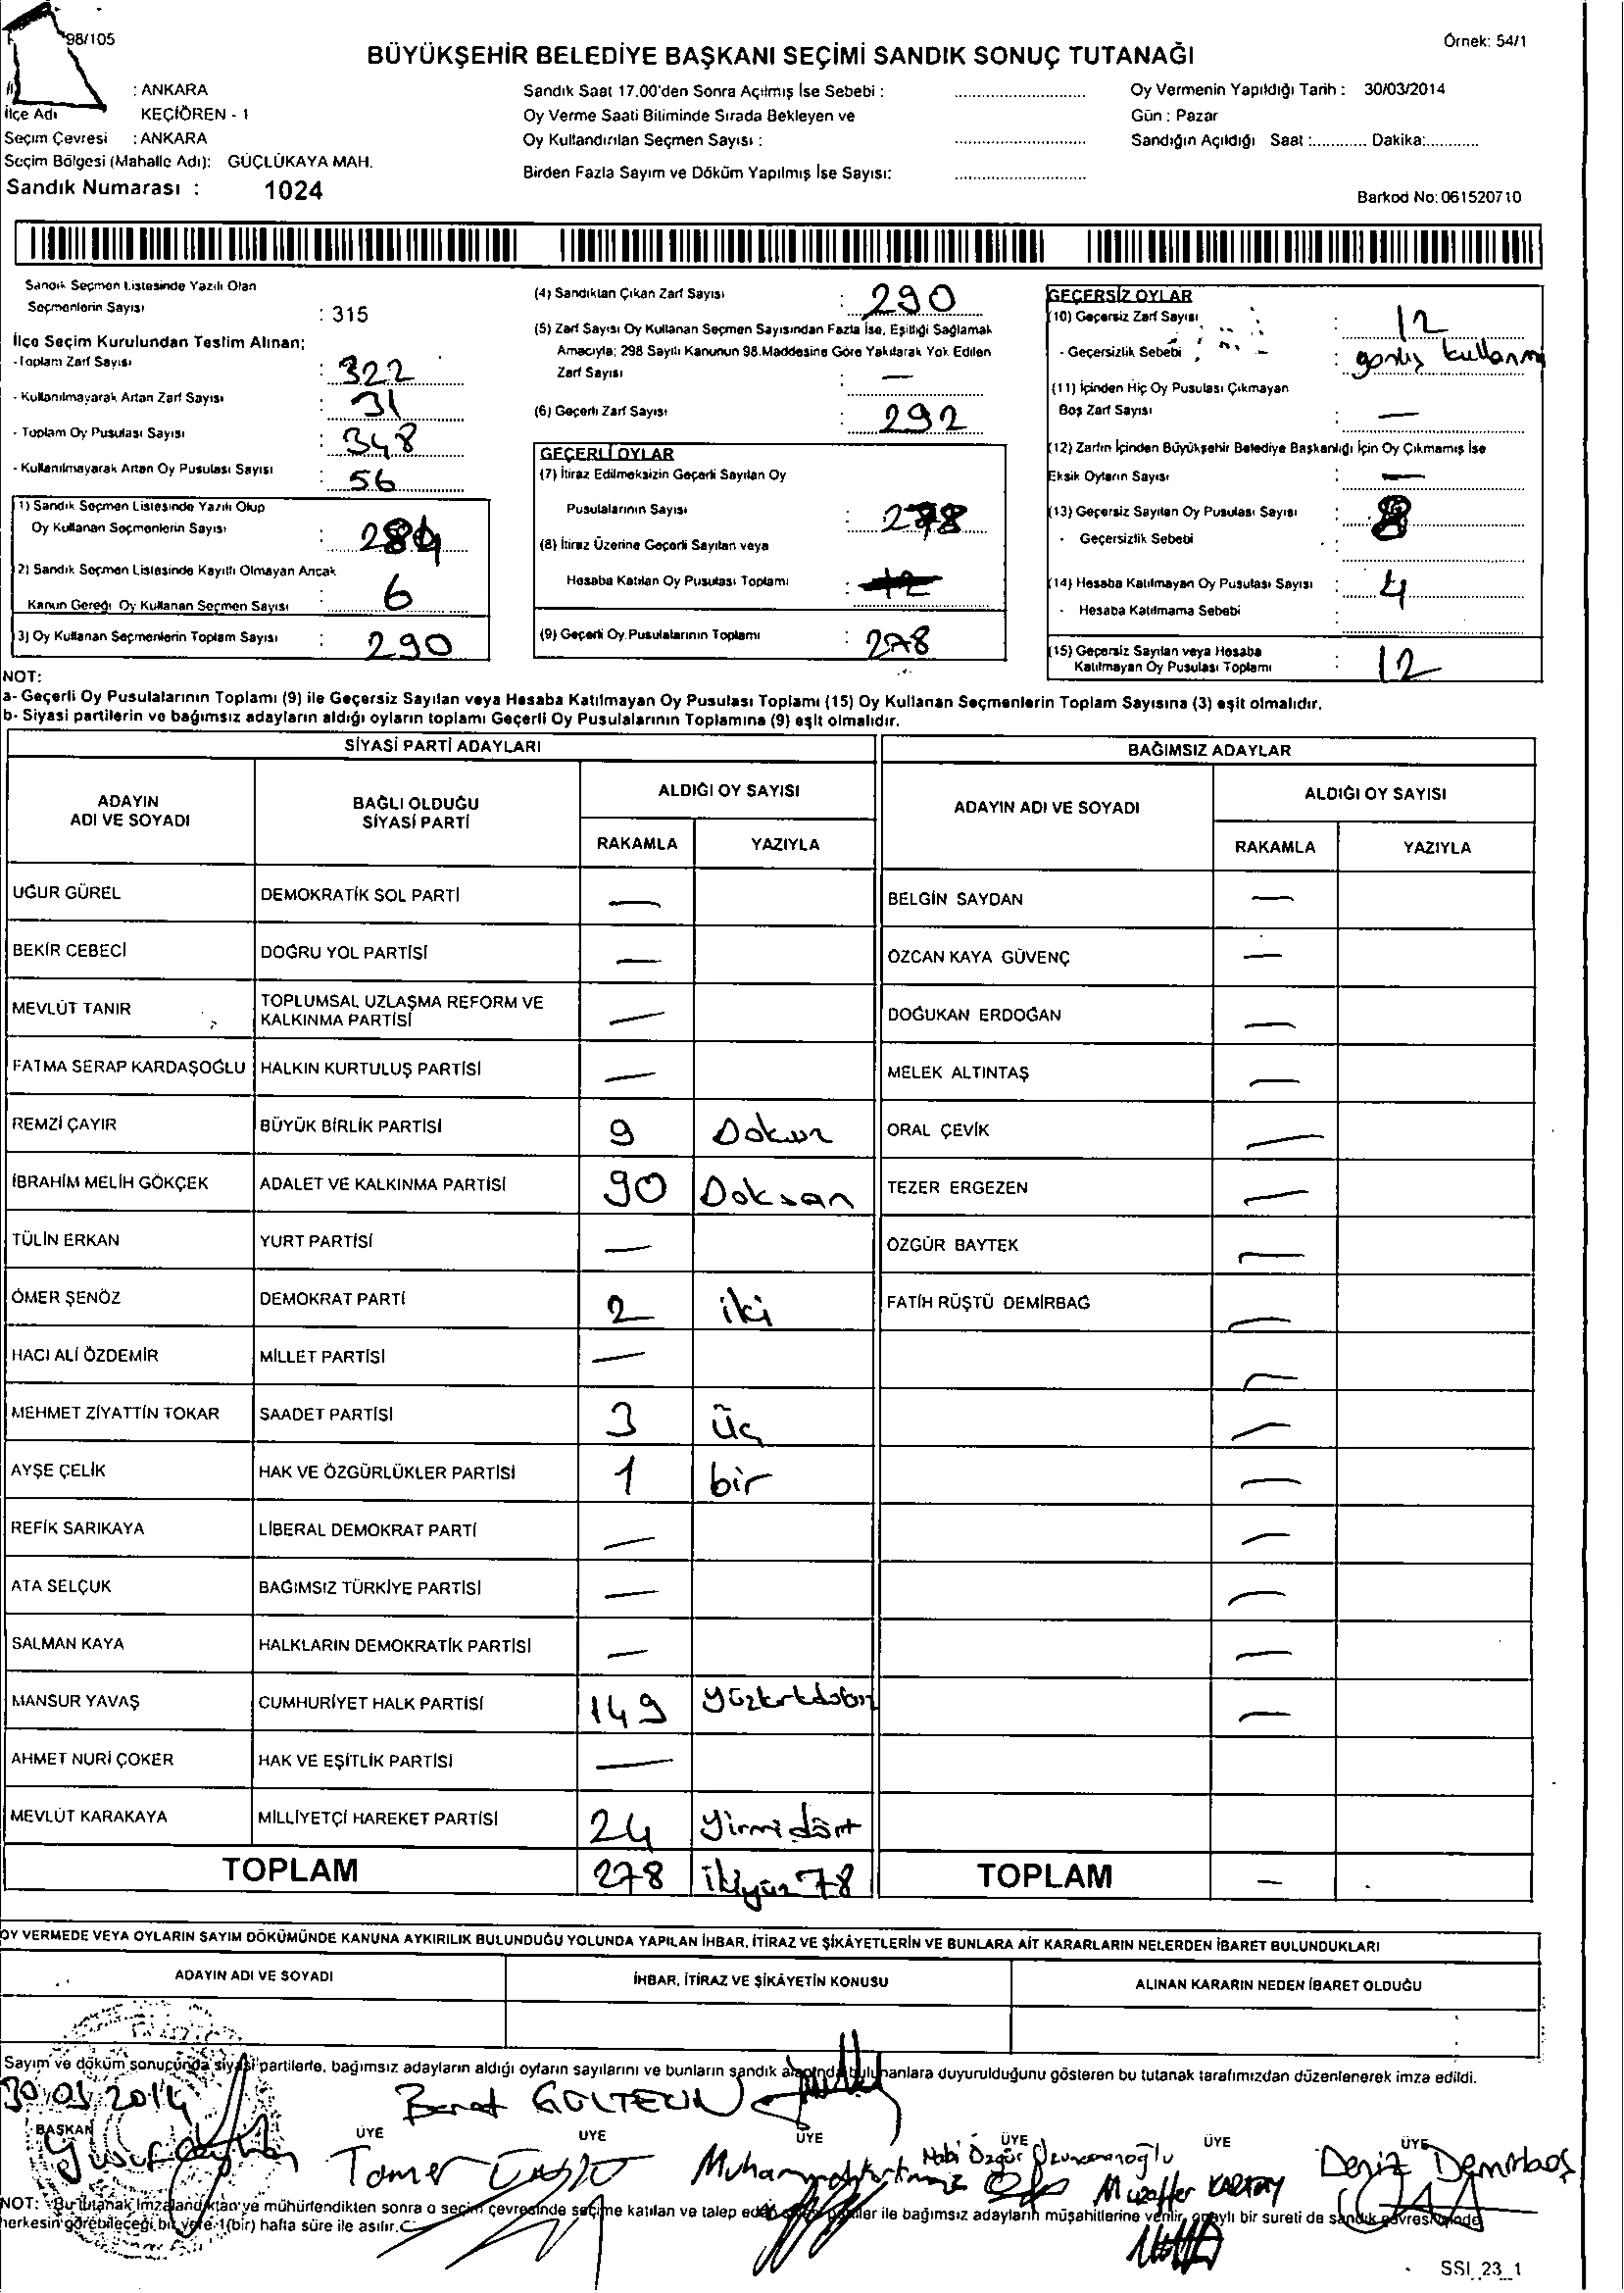 98/105
Örnek: 54/1
BÜYÜKŞEHİR BELEDİYE BAŞKANI SEÇİMİ SANDIK SONUÇ TUTANAĞI
: ANKARA
İlçe Adı KEÇİÖREN - 1
Seçim Çevresi : ANKARA
Seçim Bölgesi (Mahalle Adı): GÜÇLÜKAYA MAH.
Sandık Numarası : 1024
Sandık Saat 17.00'den Sonra Açılmış İse Sebebi :
Oy Verme Saati Bitiminde Sırada Bekleyen ve
Oy Kullandırılan Seçmen Sayısı :
Birden Fazla Sayım ve Döküm Yapılmış İse Sayısı:
Oy Vermenin Yapıldığı Tarih : 30/03/2014
Gün : Pazar
Sandığın Açıldığı Saat :............ Dakika:............
Barkod No: 061520710
Sandık Seçmen Listesinde Yazılı Olan
Seçmenlerin Sayısı : 315
İlçe Seçim Kurulundan Teslim Alınan;
- Toplam Zarf Sayısı : 322
- Kullanılmayarak Artan Zarf Sayısı : 31
- Toplam Oy Pusulası Sayısı : 348
- Kullanılmayarak Artan Oy Pusulası Sayısı : 56
(1) Sandık Seçmen Listesinde Yazılı Olup
Oy Kullanan Seçmenlerin Sayısı : 284
(2) Sandık Seçmen Listesinde Kayıtlı Olmayan Ancak
Kanun Gereği Oy Kullanan Seçmen Sayısı : 6
(3) Oy Kullanan Seçmenlerin Toplam Sayısı : 290
(4) Sandıktan Çıkan Zarf Sayısı : 290
(5) Zarf Sayısı Oy Kullanan Seçmen Sayısından Fazla İse, Eşitliği Sağlamak
Amacıyla; 298 Sayılı Kanunun 98.Maddesine Göre Yakılarak Yok Edilen
Zarf Sayısı : —
(6) Geçerli Zarf Sayısı : 292
GEÇERLİ OYLAR
(7) İtiraz Edilmeksizin Geçerli Sayılan Oy
Pusulalarının Sayısı : 278
(8) İtiraz Üzerine Geçerli Sayılan veya
Hesaba Katılan Oy Pusulası Toplamı :
(9) Geçerli Oy Pusulalarının Toplamı : 278
GEÇERSİZ OYLAR
(10) Geçersiz Zarf Sayısı : 12
- Geçersizlik Sebebi :
(11) İçinden Hiç Oy Pusulası Çıkmayan
Boş Zarf Sayısı : —
(12) Zarfın İçinden Büyükşehir Belediye Başkanlığı İçin Oy Çıkmamış İse
Eksik Oyların Sayısı : —
(13) Geçersiz Sayılan Oy Pusulası Sayısı : 8
- Geçersizlik Sebebi :
(14) Hesaba Katılmayan Oy Pusulası Sayısı : 4
- Hesaba Katılmama Sebebi :
(15) Geçersiz Sayılan veya Hesaba
Katılmayan Oy Pusulası Toplamı : 12
NOT:
a- Geçerli Oy Pusulalarının Toplamı (9) ile Geçersiz Sayılan veya Hesaba Katılmayan Oy Pusulası Toplamı (15) Oy Kullanan Seçmenlerin Toplam Sayısına (3) eşit olmalıdır.
b- Siyasi partilerin ve bağımsız adayların aldığı oyların toplamı Geçerli Oy Pusulalarının Toplamına (9) eşit olmalıdır.
SİYASİ PARTİ ADAYLARI
ADAYIN ADI VE SOYADI
BAĞLI OLDUĞU SİYASİ PARTİ
ALDIĞI OY SAYISI
RAKAMLA YAZIYLA
UĞUR GÜREL DEMOKRATİK SOL PARTİ —
BEKİR CEBECİ DOĞRU YOL PARTİSİ —
MEVLÜT TANIR TOPLUMSAL UZLAŞMA REFORM VE KALKINMA PARTİSİ —
FATMA SERAP KARDAŞOĞLU HALKIN KURTULUŞ PARTİSİ —
REMZİ ÇAYIR BÜYÜK BİRLİK PARTİSİ 9 Dokuz
İBRAHİM MELİH GÖKÇEK ADALET VE KALKINMA PARTİSİ 90 Doksan
TÜLİN ERKAN YURT PARTİSİ —
ÖMER ŞENÖZ DEMOKRAT PARTİ 2 iki
HACI ALİ ÖZDEMİR MİLLET PARTİSİ —
MEHMET ZİYATTİN TOKAR SAADET PARTİSİ 3 Üç
AYŞE ÇELİK HAK VE ÖZGÜRLÜKLER PARTİSİ 1 bir
REFİK SARIKAYA LİBERAL DEMOKRAT PARTİ —
ATA SELÇUK BAĞIMSIZ TÜRKİYE PARTİSİ —
SALMAN KAYA HALKLARIN DEMOKRATİK PARTİSİ —
MANSUR YAVAŞ CUMHURİYET HALK PARTİSİ 149
AHMET NURİ ÇOKER HAK VE EŞİTLİK PARTİSİ —
MEVLÜT KARAKAYA MİLLİYETÇİ HAREKET PARTİSİ 24 Yirmi dört
TOPLAM 278 ikiyüz 78
BAĞIMSIZ ADAYLAR
ADAYIN ADI VE SOYADI
ALDIĞI OY SAYISI
RAKAMLA YAZIYLA
BELGİN SAYDAN —
ÖZCAN KAYA GÜVENÇ —
DOĞUKAN ERDOĞAN —
MELEK ALTINTAŞ —
ORAL ÇEVİK —
TEZER ERGEZEN —
ÖZGÜR BAYTEK —
FATİH RÜŞTÜ DEMİRBAĞ —
—
—
—
—
—
—
—
TOPLAM —
OY VERMEDE VEYA OYLARIN SAYIM DÖKÜMÜNDE KANUNA AYKIRILIK BULUNDUĞU YOLUNDA YAPILAN İHBAR, İTİRAZ VE ŞİKÂYETLERİN VE BUNLARA AİT KARARLARIN NELERDEN İBARET BULUNDUKLARI
ADAYIN ADI VE SOYADI
İHBAR, İTİRAZ VE ŞİKÂYETİN KONUSU
ALINAN KARARIN NEDEN İBARET OLDUĞU
Sayım ve döküm sonucunda siyasi partilerle, bağımsız adayların aldığı oyların sayılarını ve bunların sandık alanında bulunanlara duyurulduğunu gösteren bu tutanak tarafımızdan düzenlenerek imza edildi.
30.03.2014
Berat GÜLTEKİN
BAŞKAN ÜYE ÜYE ÜYE ÜYE ÜYE ÜYE
Yusuf
Tamer
Nabi Özgür
Muzaffer
Deniz Demirbaş
NOT: Bu tutanak imzalandıktan ve mühürlendikten sonra o seçim çevresinde seçime katılan ve talep eden partiler ile bağımsız adayların müşahitlerine verilir, onaylı bir sureti de sandık çevresinde
herkesin görebileceği bir yere 1(bir) hafta süre ile asılır.
SSI_23_1